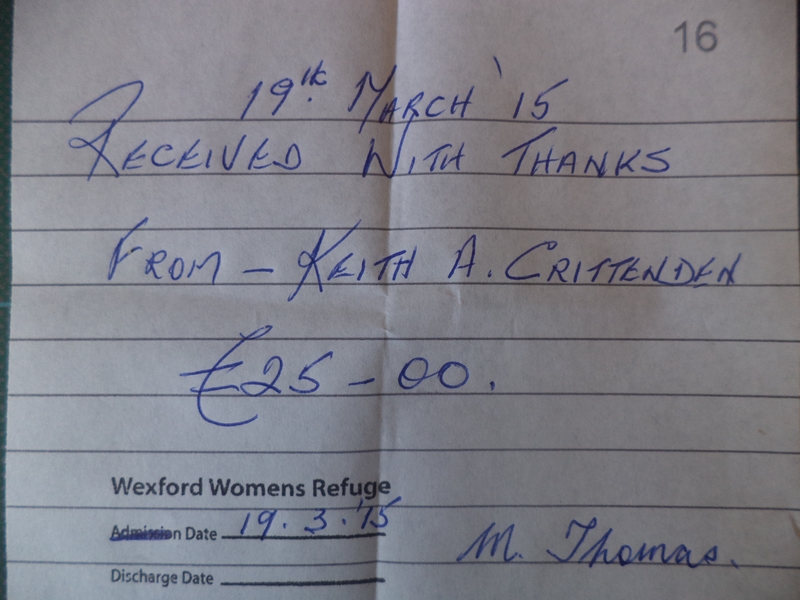 16
19th March '15
RECEIVED WITH THANKS
FROM – KEITH A. CRITTENDEN
€25–00.
Wexford Womens Refuge
Admission Date 19.3.'15
M. Thomas.
Discharge Date